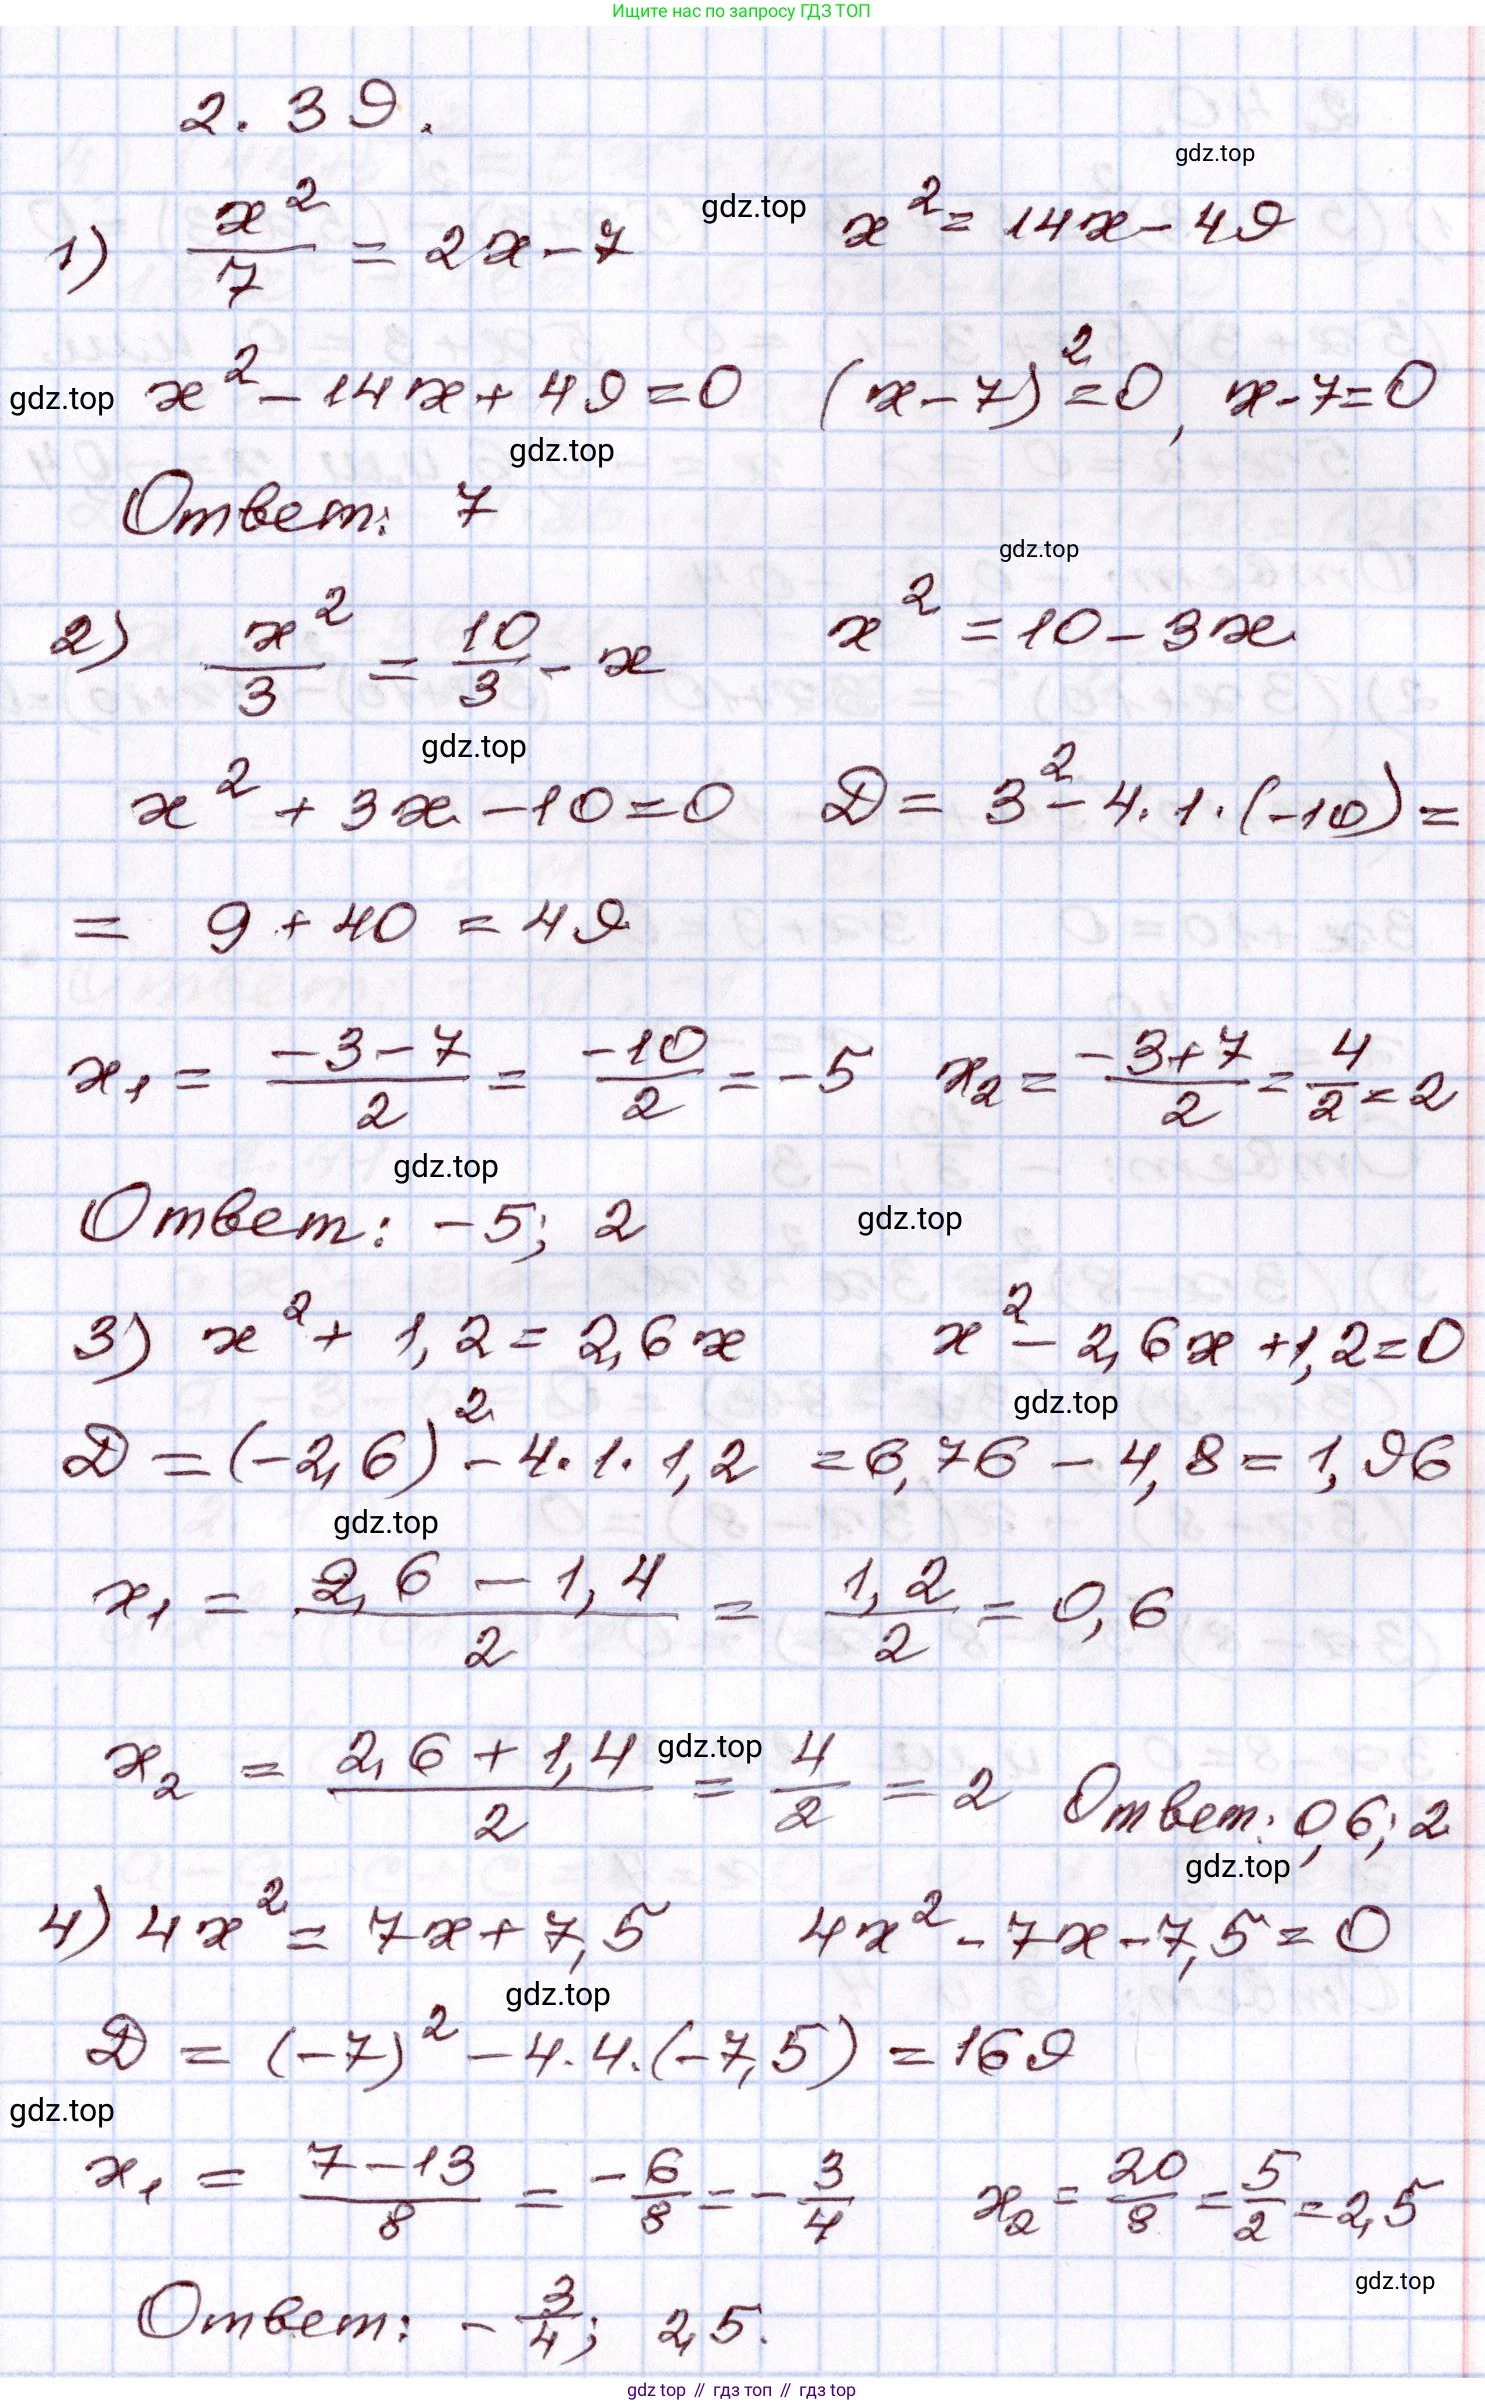 Ищите нас по запросу ГДЗ ТОП
2.39.
gdz.top
1) x²/7 = 2x-7 gdz.top x² = 14x-49
gdz.top x² - 14x + 49 = 0 (x-7)² = 0, x-7=0
gdz.top
Ответ: 7
gdz.top
2) x²/3 = 10/3 - x x² = 10-3x
gdz.top
x² + 3x - 10 = 0 D = 3² - 4·1·(-10) =
= 9 + 40 = 49
x₁ = (-3-7)/2 = -10/2 = -5 x₂ = (-3+7)/2 = 4/2 = 2
gdz.top
Ответ: -5; 2 gdz.top
3) x² + 1,2 = 2,6x x² - 2,6x + 1,2 = 0
gdz.top
D = (-2,6)² - 4·1·1,2 = 6,76 - 4,8 = 1,96
gdz.top
x₁ = (2,6 - 1,4)/2 = 1,2/2 = 0,6
x₂ = (2,6 + 1,4)/2 gdz.top = 4/2 = 2 Ответ: 0,6; 2
gdz.top
4) 4x² = 7x + 7,5 4x² - 7x - 7,5 = 0
gdz.top
D = (-7)² - 4·4·(-7,5) = 169
gdz.top
x₁ = (7-13)/8 = -6/8 = -3/4 x₂ = 20/8 = 5/2 = 2,5
gdz.top
Ответ: -3/4; 2,5.
gdz top // гдз топ // гдз top